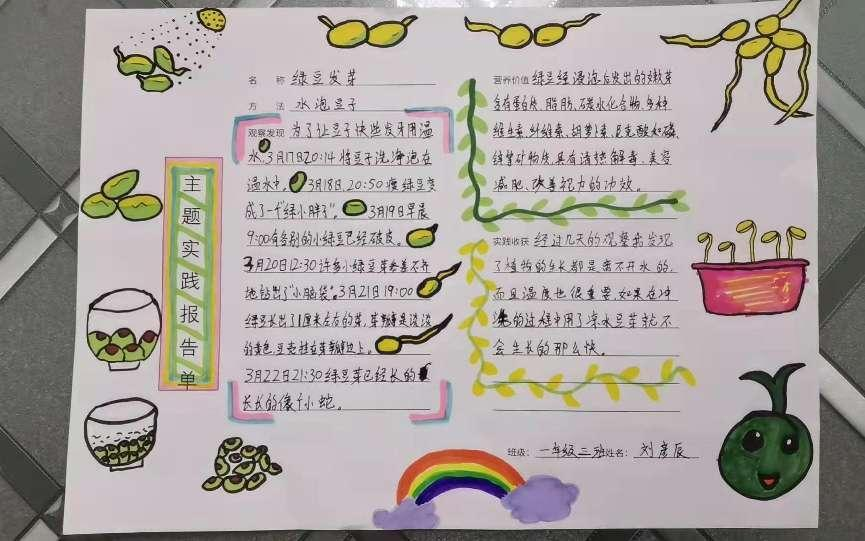 主题实践报告单
名 称 绿豆发芽
方 法 水泡豆子
观察发现 为了让豆子快些发牙用温
水。3月17日20:14将豆子洗净泡在
温水中。3月18日,20:50瘦绿豆变
成了一个"绿小胖子"。3月19日早晨
9:00有个别的小绿豆已经破皮。
3月20日12:30许多小绿豆芽争着不齐
地钻出了"小脑袋"。3月21日19:00
绿豆长出了1厘米左右的芽,芽瓣是淡淡
的黄色,豆壳挂在芽瓣边上。
3月22日21:30绿豆芽已经长的
长长的像个小蛇。
营养价值 绿豆经浸泡后发出的嫩芽
含有蛋白质、脂肪、碳水化合物、多种
维生素、纤维素、胡萝卜素、尼克酸和磷、
锌等矿物质具有清热解毒、美容
减肥、改善视力的功效。
实践收获 经过几天的观察我发现
了植物的生长都是离不开水的,
而且温度也很重要,如果在冲
的过程中用了凉水豆芽就不
会生长的那么快。
班级: 一年级三班 姓名: 刘彦辰